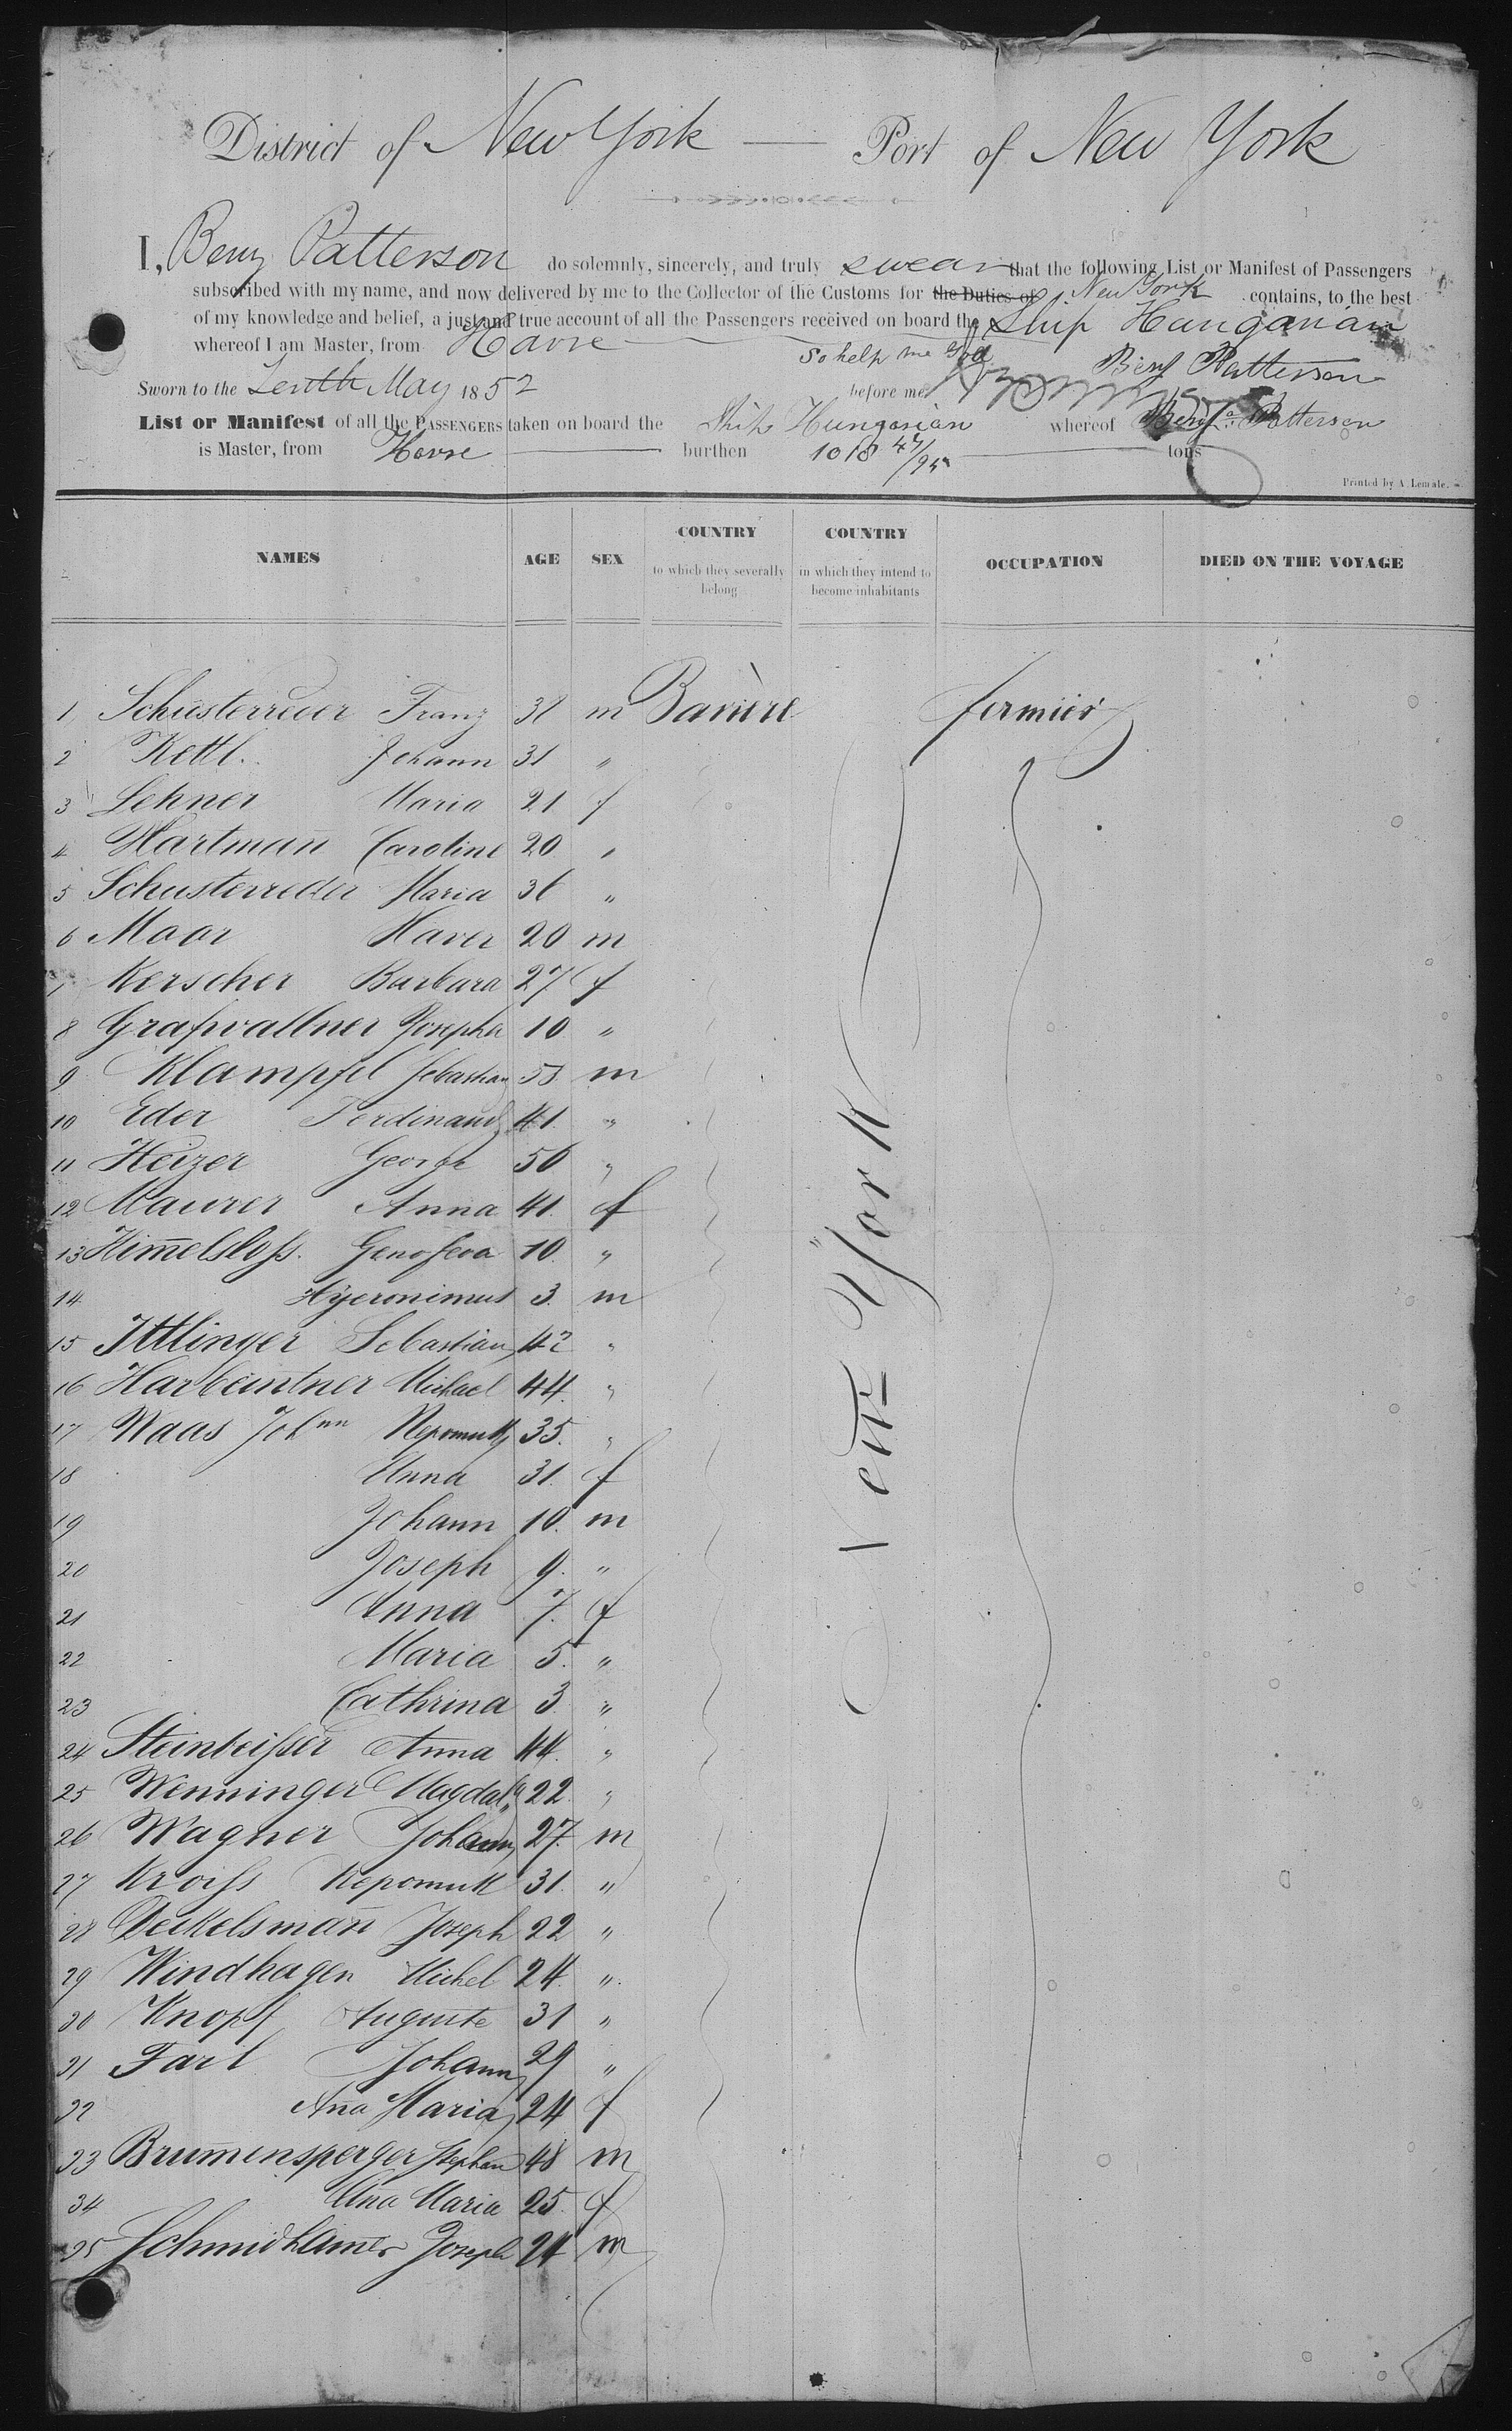 District of New York — Port of New York
I, Benj Patterson do solemnly, sincerely, and truly swear that the following List or Manifest of Passengers
subscribed with my name, and now delivered by me to the Collector of the Customs for the Duties of New York contains, to the best
of my knowledge and belief, a just and true account of all the Passengers received on board the Ship Hungarian
whereof I am Master, from Havre So help me God Benj Patterson
Sworn to the Tenth May 1852 before me
List or Manifest of all the PASSENGERS taken on board the Ship Hungarian whereof Benj. Patterson
is Master, from Havre burthen 1018 47/95 tons
Printed by A. Lemale.
NAMES AGE SEX COUNTRY to which they severally belong COUNTRY in which they intend to become inhabitants OCCUPATION DIED ON THE VOYAGE
1 Schusterreder Franz 38 m Bavière fermier
2 Kettl. Johann 31 "
3 Lehner Maria 21 f
4 Hartmañ Caroline 20 "
5 Schusterreder Maria 36 "
6 Maar Xaver 20 m
7 Kerscher Barbara 27 f
8 Grafwallner Josepha 10 "
9 Klampfel Sebastian 53 m
10 Eder Ferdinand 41 "
11 Heizer George 50 "
12 Maurer Anna 41 f
13 Him̄elsloss. Genofeva 10 "
14 Hyeronimus 3 m
15 Ittlinger Sebastian 42 "
16 Harbeintner Michael 44 "
17 Waas Johnn Nepomuk 35 "
18 Anna 31 f
19 Johann 10 m
20 Joseph 9 "
21 Anna 7 f
22 Maria 5 "
23 Cathrina 3 "
24 Steinbeisser Anna 44 "
25 Wenninger Magdala 22 "
26 Wagner Johann 27 m
27 Kroiss Nepomuk 31 "
28 Deikelsmañ Joseph 22 "
29 Windhagen Michel 24 "
30 Knopf Auguste 31 "
31 Farl Johann 29 "
32 Aña Maria 24 f
33 Brum̄ensperger Stephan 48 m
34 Aña Maria 25 f
35 Schmidham̄er Joseph 24 m
New York